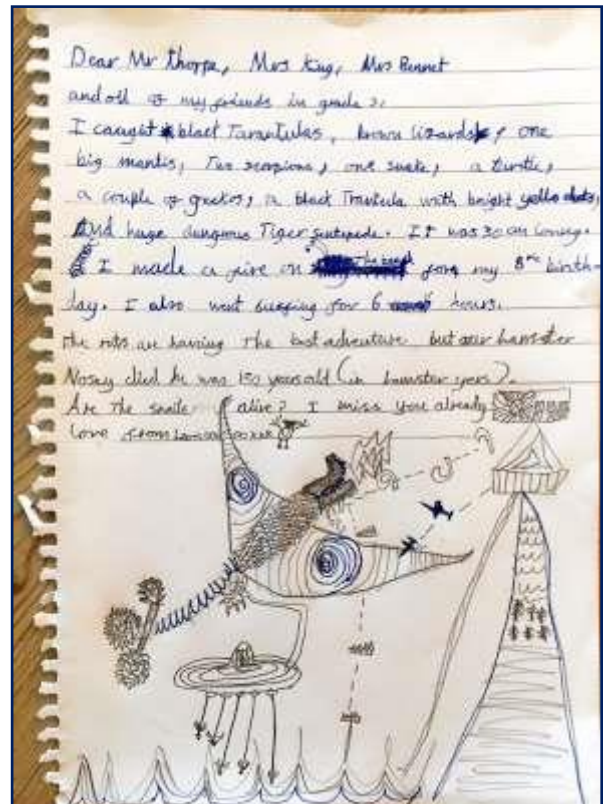 Dear Mr Thorpe, Mrs King, Mrs Bennet
and all of my friends in grade 2,
I caught black Tarantulas, brown lizards, one
big mantis, Two scorpions, one snake, a turtle,
a couple of geckos, a black Trantula with bright yello dots,
And huge dangrous Tiger sentepide. It was 30 cm long.
I made a fire on the beach for my 8th birth-
day. I also went bugging for 6 hours.
the rats are having the best adventure but our hamster
Nosey died he was 150 years old (in hamster yers).
Are the snails alive? I miss you already
love from